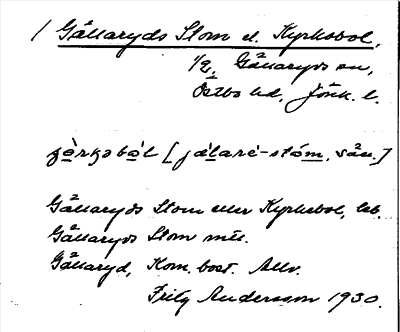 / Gällaryds Stom el. Kyrkobol,
1/2, Gällaryds sn,
Östbo hd, Jönk. l.
[jälare-stóm, sån.]
Gällaryds Stom eller Kyrkobol, leb.
Gällaryds Stom mtl.
Gällaryd, Kom. bost. Allv.
Fritz Andersson 1930.